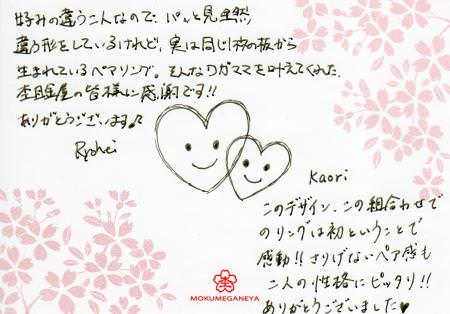 好みの違う二人なので、パッと見全然
違う形をしているけれど、実は同じ1枚の板から
生まれているペアリング。そんなワガママを叶えてくれた
杢目金屋の皆様に感謝です!!
ありがとうございます♪
Ryohei
Kaori
このデザイン、この組合わせで
のリングは初ということで
感動!! さりげないペア感も
二人の性格にピッタリ!!
ありがとうございました♥
MOKUMEGANEYA